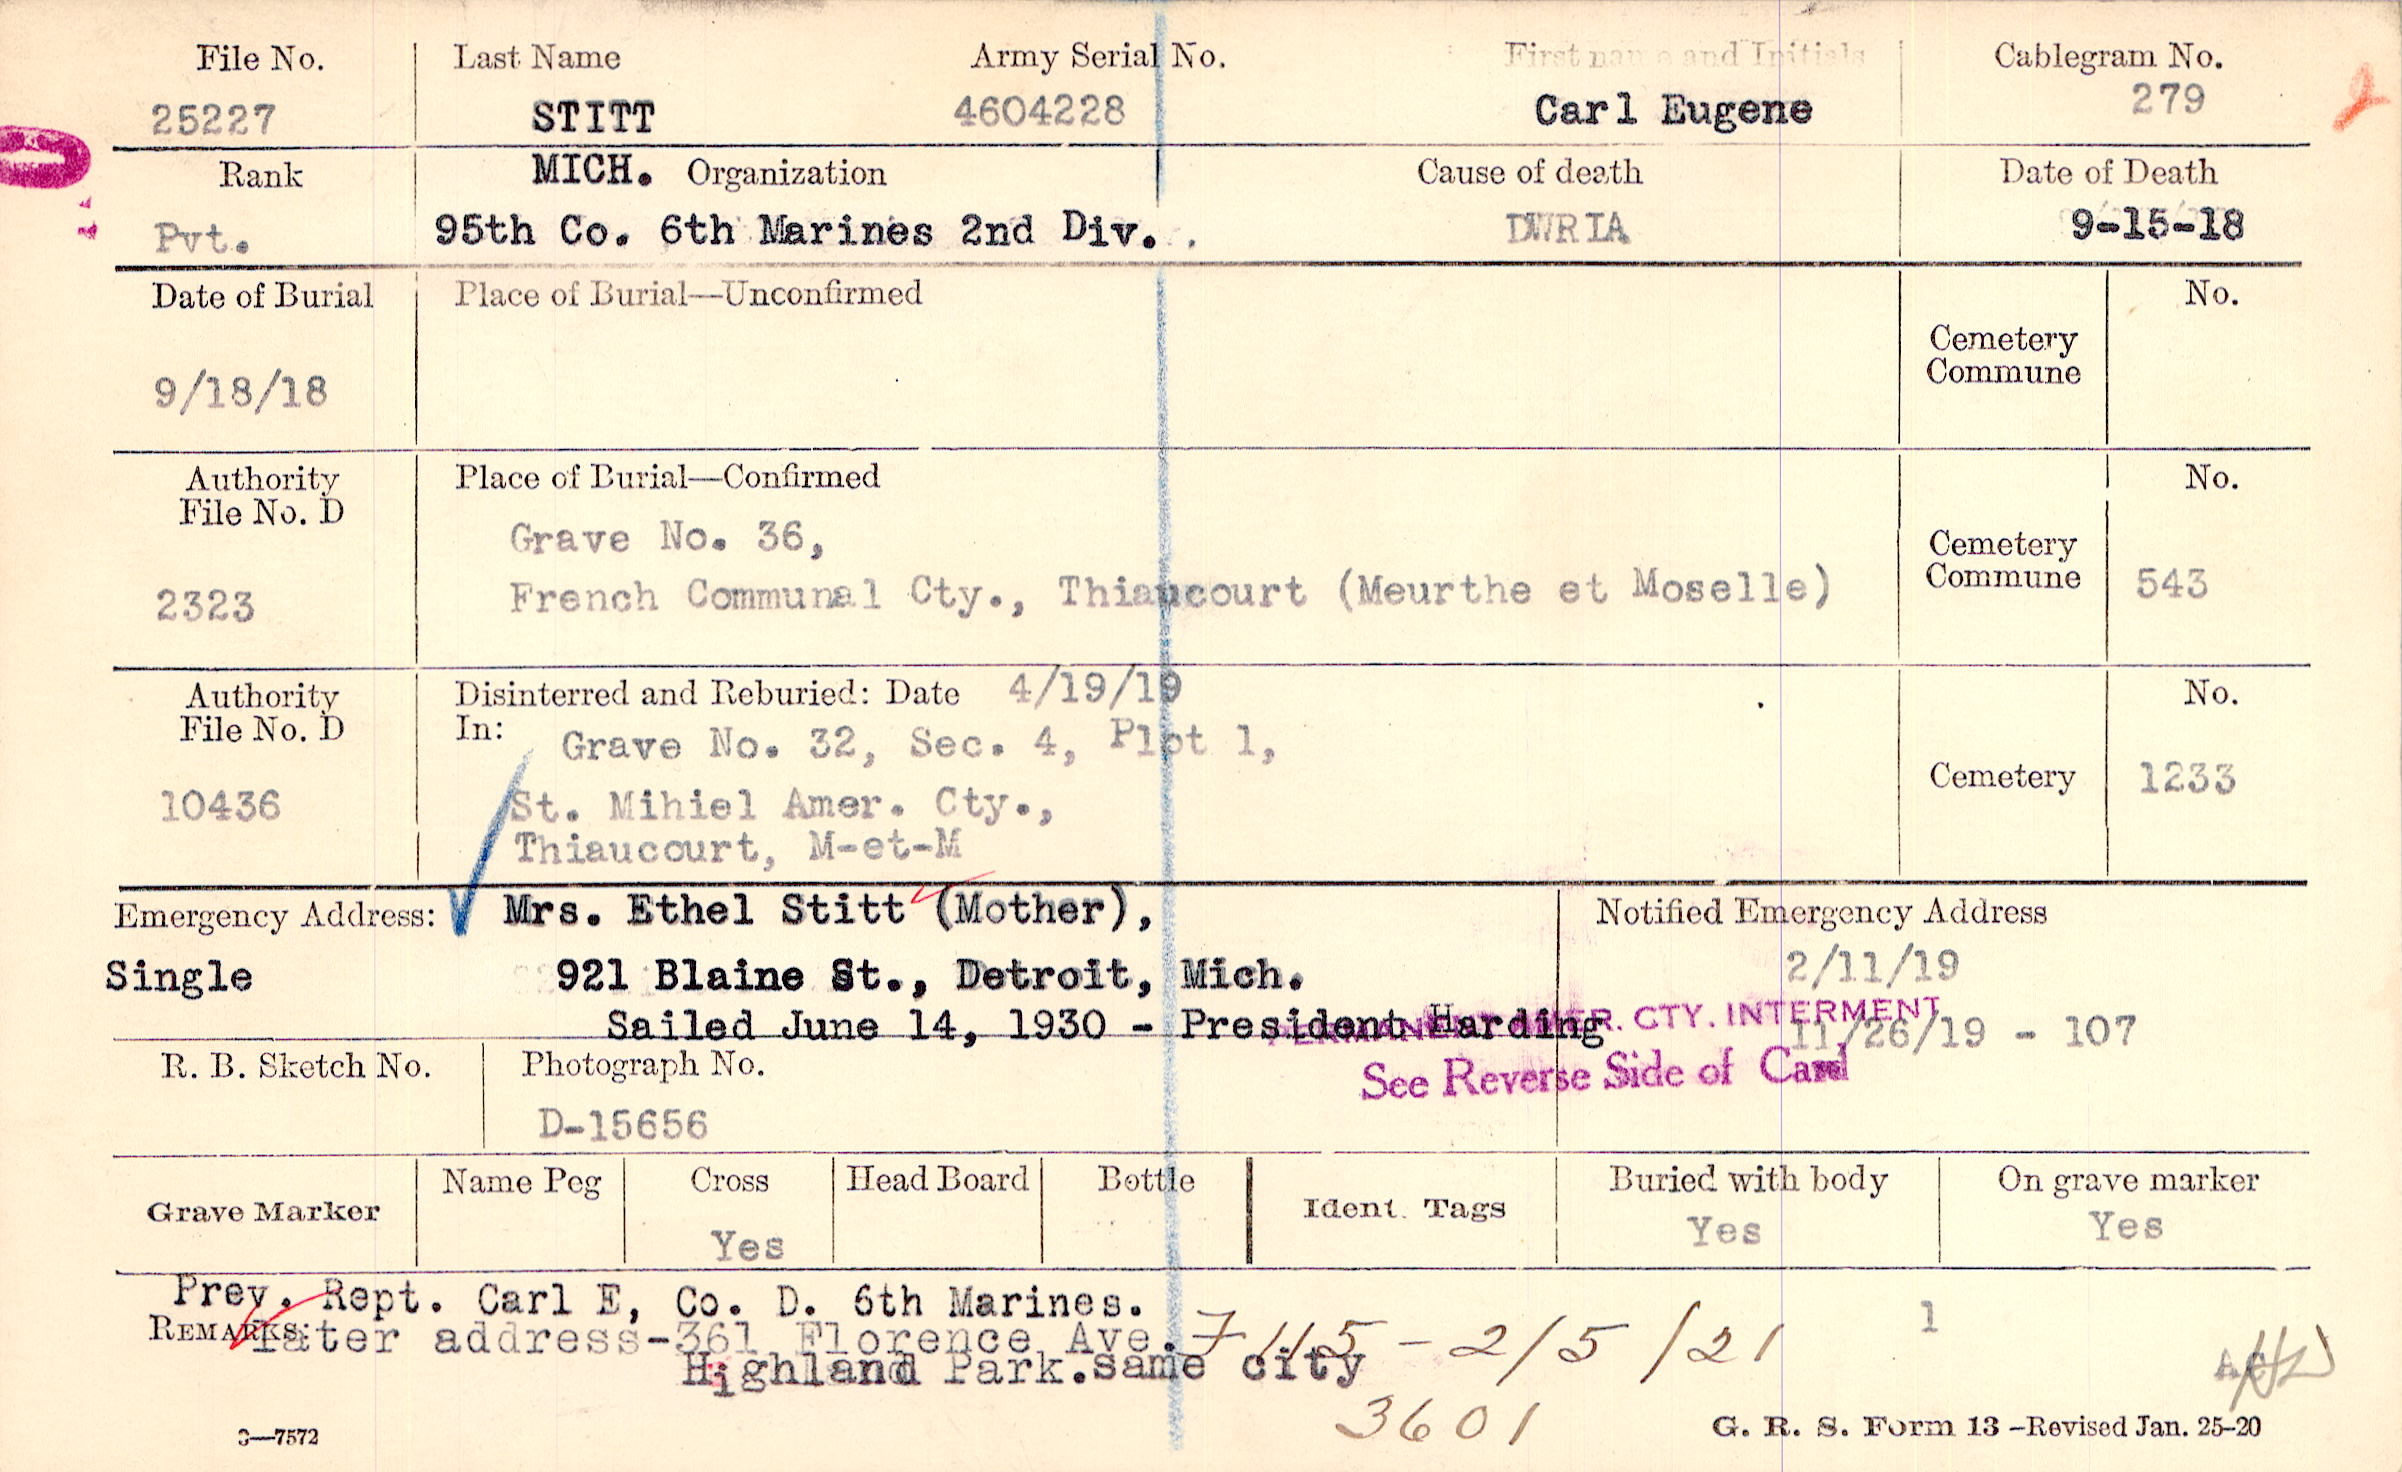 File No. Last Name Army Serial No. First name and Initials Cablegram No.
25227 STITT 4604228 Carl Eugene 279
Rank MICH. Organization Cause of death Date of Death
Pvt. 95th Co. 6th Marines 2nd Div. DWRIA 9-15-18
Date of Burial Place of Burial—Unconfirmed No.
Cemetery
Commune
9/18/18
Authority Place of Burial—Confirmed No.
File No. D
Grave No. 36,
Cemetery
Commune
2323 French Communal Cty., Thiaucourt (Meurthe et Moselle) 543
Authority Disinterred and Reburied: Date 4/19/19 No.
File No. D In: Grave No. 32, Sec. 4, Plot 1,
Cemetery 1233
10436 St. Mihiel Amer. Cty.,
Thiaucourt, M-et-M
Emergency Address: Mrs. Ethel Stitt (Mother), Notified Emergency Address
Single 921 Blaine St., Detroit, Mich. 2/11/19
Sailed June 14, 1930 - President Harding 11/26/19 - 107
CTY. INTERMENT
See Reverse Side of Card
R. B. Sketch No. Photograph No.
D-15656
Grave Marker Name Peg Cross Head Board Bottle Ident. Tags Buried with body On grave marker
Yes Yes Yes
Prev. Rept. Carl E, Co. D. 6th Marines.
REMARKS: later address-361 Florence Ave. 7115 - 2/5/21 1
Highland Park. same city
3601
3—7572 G. R. S. Form 13 –Revised Jan. 25-20